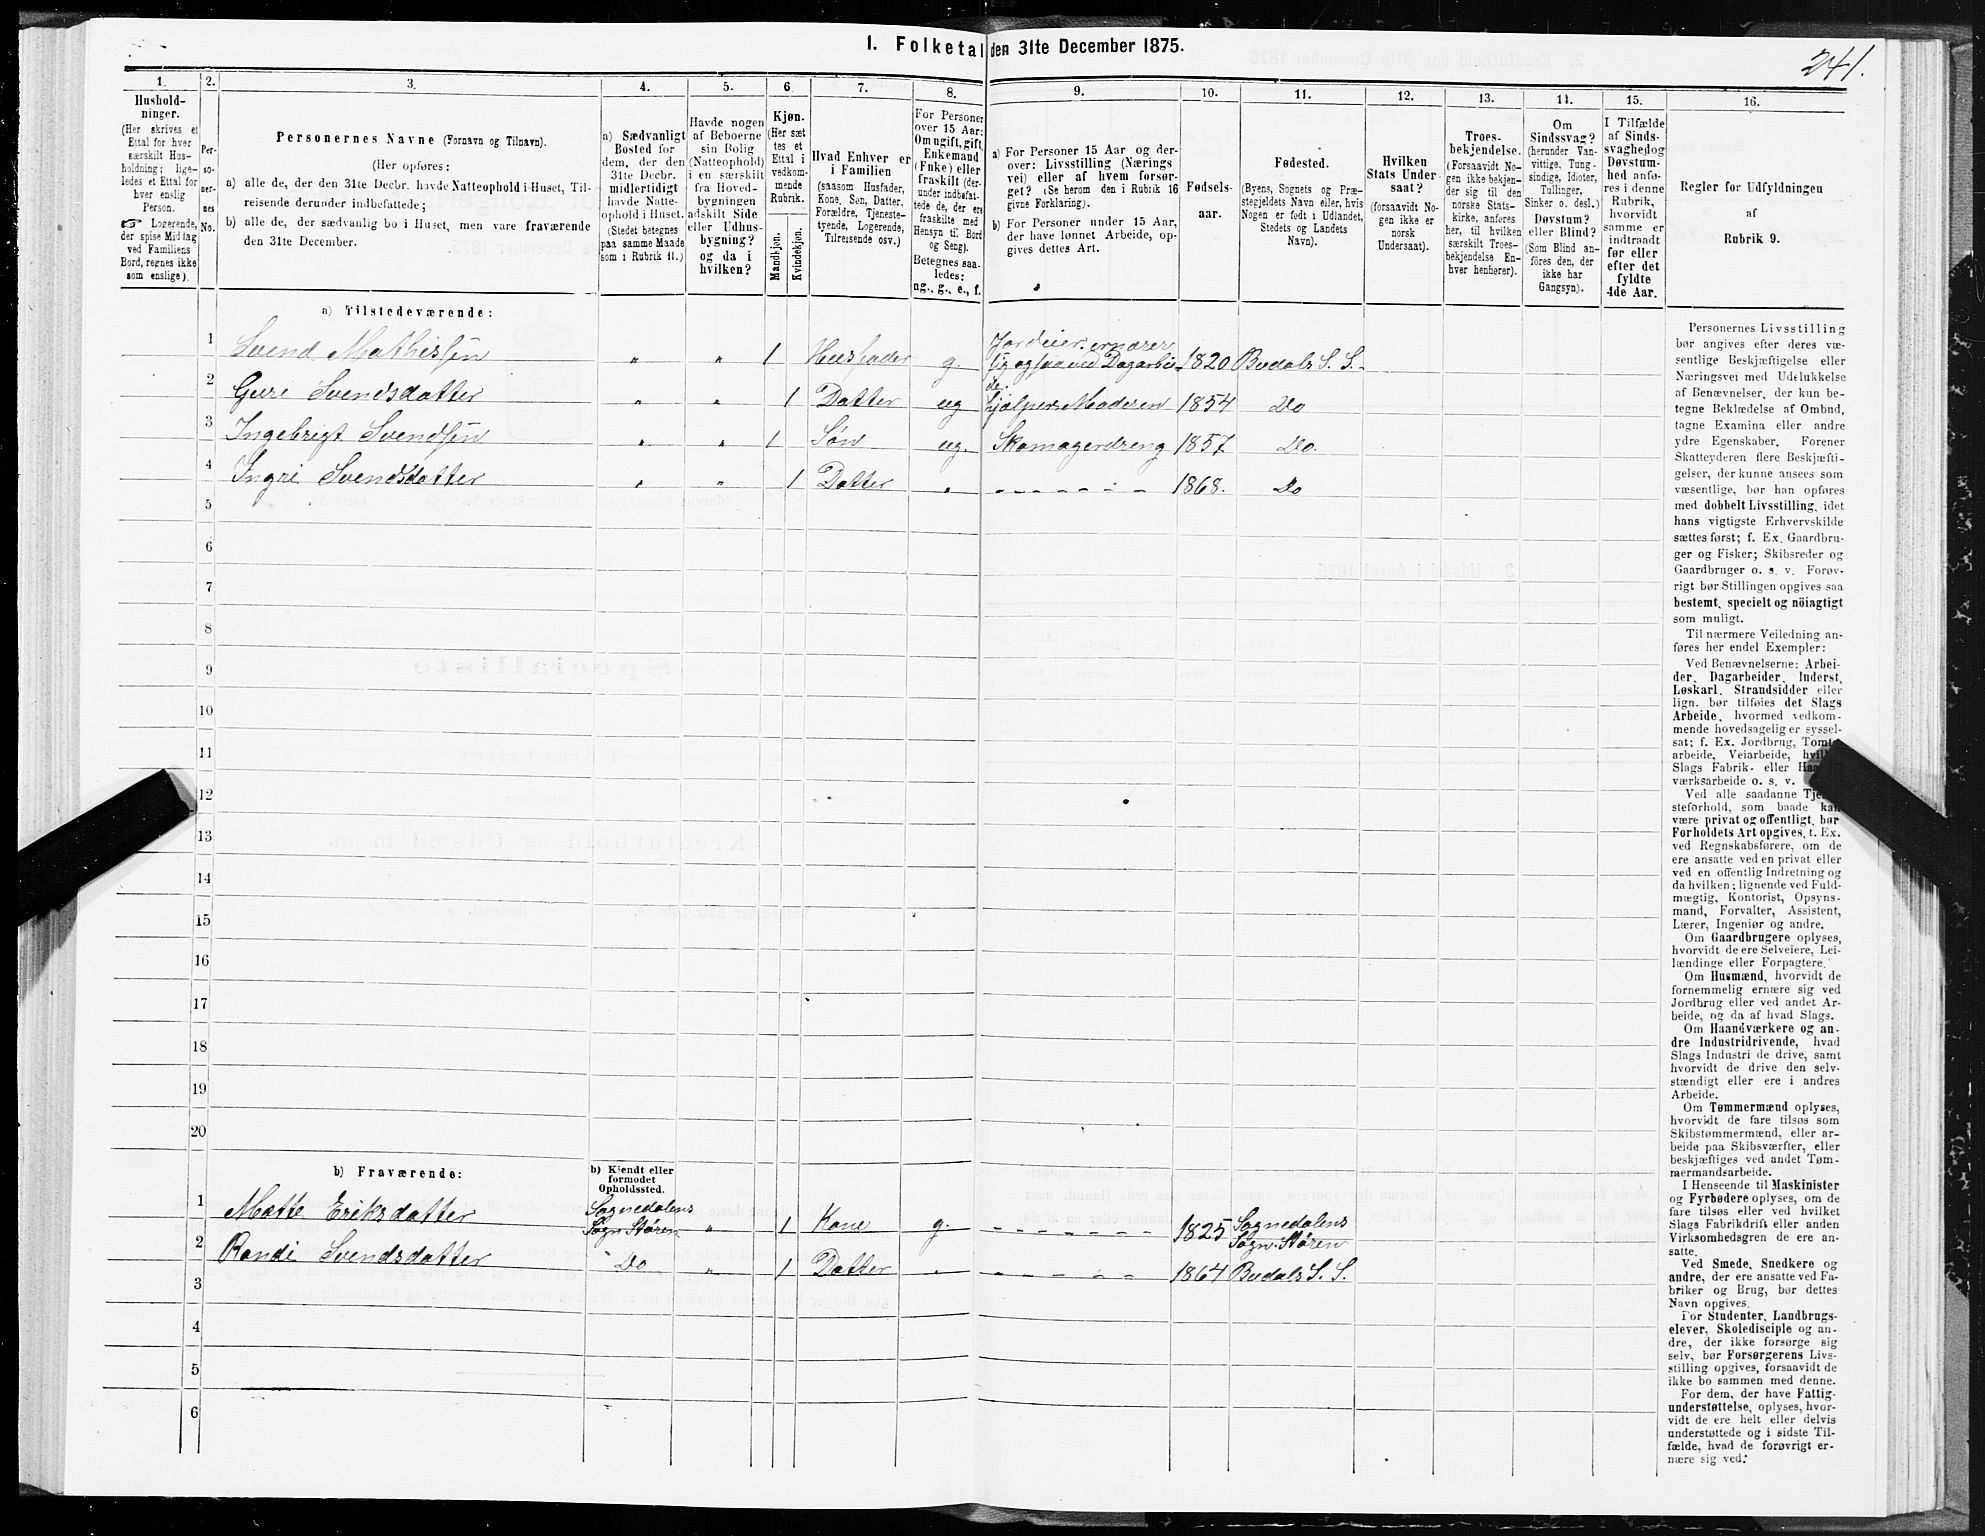 1. Folketal den 31te December 1875.
241.
1.
2.
3.
4.
5.
6.
7.
8.
9.
10.
11.
12.
13.
14.
15.
16.
Hushold-
ninger.
(Her skrives et
Ettal for hver
særskilt Hus-
holdning; lige-
ledes et Ettal for
hver enslig
Person.
☞ Logerende,
der spise Middag
ved Familiens
Bord, regnes ikke
som enslige).
Per-
so-
ner-
nes
No.
Personernes Navne (Fornavn og Tilnavn).
(Her opføres:
a) alle de, der den 31te Decbr. havde Natteophold i Huset, Til-
reisende derunder indbefattede;
b) alle de, der sædvanlig bo i Huset, men vare fraværende
den 31te December.
a) Sædvanligt
Bosted for
dem, der den
31te Decbr.
midlertidigt
havde Natte-
ophold i Huset.
(Stedet betegnes
paa samme Maade
som i Rubrik 11.)
Havde nogen
af Beboerne
sin Bolig
(Natteophold)
i en særskilt
fra Hoved-
bygningen
adskilt Side
eller Udhus-
bygning?
og da i
hvilken?
Kjøn.
(Her sæt
tes et
Ettal i
vedkom-
mende
Rubrik.
Mandkjøn.
Kvindekjøn.
Hvad Enhver er
i Familien
(saasom Husfader,
Kone, Søn, Datter,
Forældre, Tjeneste-
tyende, Logerende,
Tilreisende osv.)
For Personer
over 15 Aar:
Om ugift, gift,
Enkemand
(Enke) eller
fraskilt (der-
under indbefat-
tede de, der ere
fraskilte med
Hensyn til Bord
og Seng).
Betegnes saa-
ledes:
ug., g., e., f.
a) For Personer 15 Aar og der-
over: Livsstilling (Nærings
vei) eller af hvem forsør-
get? (Se herom den i Rubrik 16
givne Forklaring).
b) For Personer under 15 Aar,
der have lønnet Arbeide, op-
gives dettes Art.
Fødsels-
aar.
Fødested.
(Byens, Sognets og Præ-
stegjeldets Navn eller, hvis
Nogen er født i Udlandet,
Stedets og Landets
Navn).
Hvilken
Stats Under
saat?
(forsaavidt No-
gen ikke er
norsk
Undersaat).
Troes-
bekjendelse.
(Forsaavidt No-
gen ikke bekjen-
der sig til den
norske Stats-
kirke, anføres
her, til hvilken
særskilt Troes-
bekjendelse En-
hver henhører).
Om
Sindssvag?
(herunder Van-
vittige, Tung-
sindige, Idioter,
Tullinger,
Sinker o. desl.)
Døvstum?
eller Blind?
(Som Blind an-
føres den, der
ikke har
Gangsyn).
I Tilfælde
af Sinds-
svaghed og
Døvstum-
hed anfø-
res i denne
Rubrik,
hvorvidt
samme er
indtraadt
før eller
efter det
fyldte
4de Aar.
Regler for Udfyldningen
af
Rubrik 9.
a) Tilstedeværende:
1 Svend Mathissen „ „ 1 Husfader g. Jordeier, ernærer
sig ogsaa ved Dagarbei- 1820 Budals S. S.
de.
2 Guri Svendsdatter „ „ 1 Datter ug hjælper Moderen 1854 Do
3 Ingebrigt Svendsen „ „ 1 Søn ug. Skomagerdreng 1857 Do.
4 Ingri Svendsdatter „ „ 1 Datter „ 1868. Do
5
6
7
8
9
10
11
12
13
14
15
16
17
18
19
20
b) Fraværende:
b) Kjendt eller
formodet
Opholdssted.
1 Mætte Eriksdatter Sognedalens
Sogn Støren „ 1 Kone g. 1825 Sognedalens
Sogn. Støren
2 Randi Svendsdatter Do „ 1 Datter „ 1864 Budals S. S.
3
4
5
6
Personernes Livsstilling
bør angives efter deres væ-
sentlige Beskjæftigelse eller
Næringsvei med Udelukkelse
af Benævnelser, der kun be-
tegne Beklædelse af Ombud,
tagne Examina eller andre
ydre Egenskaber. Forener
Skatteyderen flere Beskjæfti-
gelser, der kunne ansees som
væsentlige, bør han opføres
med dobbelt Livsstilling, idet
hans vigtigste Erhvervskilde
sættes først; f. Ex. Gaardbru-
ger og Fisker; Skibsreder og
Gaardbruger o. s. v. Forøv-
rigt bør Stillingen opgives saa
bestemt, specielt og nöiagtigt
som muligt.
Til nærmere Veiledning an-
føres her endel Exempler:
Ved Benævnelserne: Arbei-
der, Dagarbeider, Inderst,
Løskarl, Strandsidder eller
lign. bør tilføies det Slags
Arbeide, hvormed vedkom-
mende hovedsagelig er syssel-
sat; f. Ex. Jordbrug, Tomte-
arbeide, Veiarbeide,
Slags Fabrik- eller
værksarbeide o. s. v.
Ved alle saadanne
steforhold, som baade
være privat og offentligt, bør
Forholdets Art opgives, t. Ex.
ved Regnskabsførere, om de
ere ansatte ved en privat eller
ved en offentlig Indretning og
da hvilken; lignende ved Fuld-
mægtig, Kontorist, Opsyns-
mand, Forvalter, Assistent,
Lærer, Ingeniør og andre.
Om Gaardbrugere oplyses,
hvorvidt de ere Selveiere, Lei-
lændinge eller Forpagtere.
Om Husmænd, hvorvidt de
fornemmelig ernære sig ved
Jordbrug eller ved andet Ar-
beide, og da af hvad Slags.
Om Haandværkere og an-
dre Industridrivende, hvad
Slags Industri de drive, samt
hvorvidt de drive den selv-
stændigt eller ere i andres
Arbeide.
Om Tømmermænd oplyses,
hvorvidt de fare tilsøs som
Skibstømmermænd, eller ar-
beide paa Skibsværfter, eller
beskjæftiges ved andet Tøm-
mermandsarbeide.
I Henseende til Maskinister
og Fyrbødere oplyses, om de
fare tilsøs eller ved hvilket
Slags Fabrikdrift eller anden
Virksomhedsgren de ere an-
satte.
Ved Smede, Snedkere og
andre, der ere ansatte ved Fa-
briker og Brug, bør dettes
Navn opgives.
For Studenter, Landbrugs-
elever, Skoledisciple og an-
dre, der ikke forsørge sig
selv, bør Forsørgerens Livs-
stilling opgives, forsaavidt de
ikke bo sammen med denne.
For dem, der have Fattig-
understøttelse, oplyses, hvor-
vidt de ere helt eller delvis
understøttede og i sidste Til-
fælde, hvad de forøvrigt er-
nære sig ved.